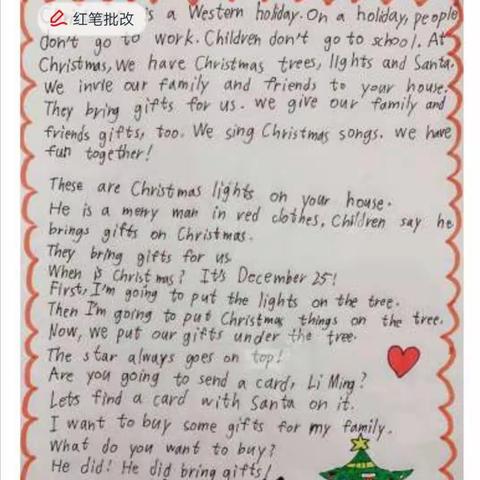 红笔批改
s a Western holiday. On a holiday, people
don't go to work. Children don't go to school. At
Christmas, we have Christmas trees, lights and Santa.
We invie our family and friends to your house.
They bring gifts for us. we give our family and
friends gifts, too. We sing Christmas songs. we have
fun together!
These are Christmas lights on your house.
He is a merry man in red clothes, Children say he
brings gifts on Christmas.
They bring gifts for us
When is Christmas? It's December 25!
First, I'm going to put the lights on the tree.
Then I'm going to put Christmas things on the tree.
Now, we put our gifts under the tree.
The star always goes on top!
Are you going to send a card, Li Ming?
Lets find a card with Santa on it.
I want to buy some gifts for my family.
What do you want to buy?
He did! He did bring gifts!